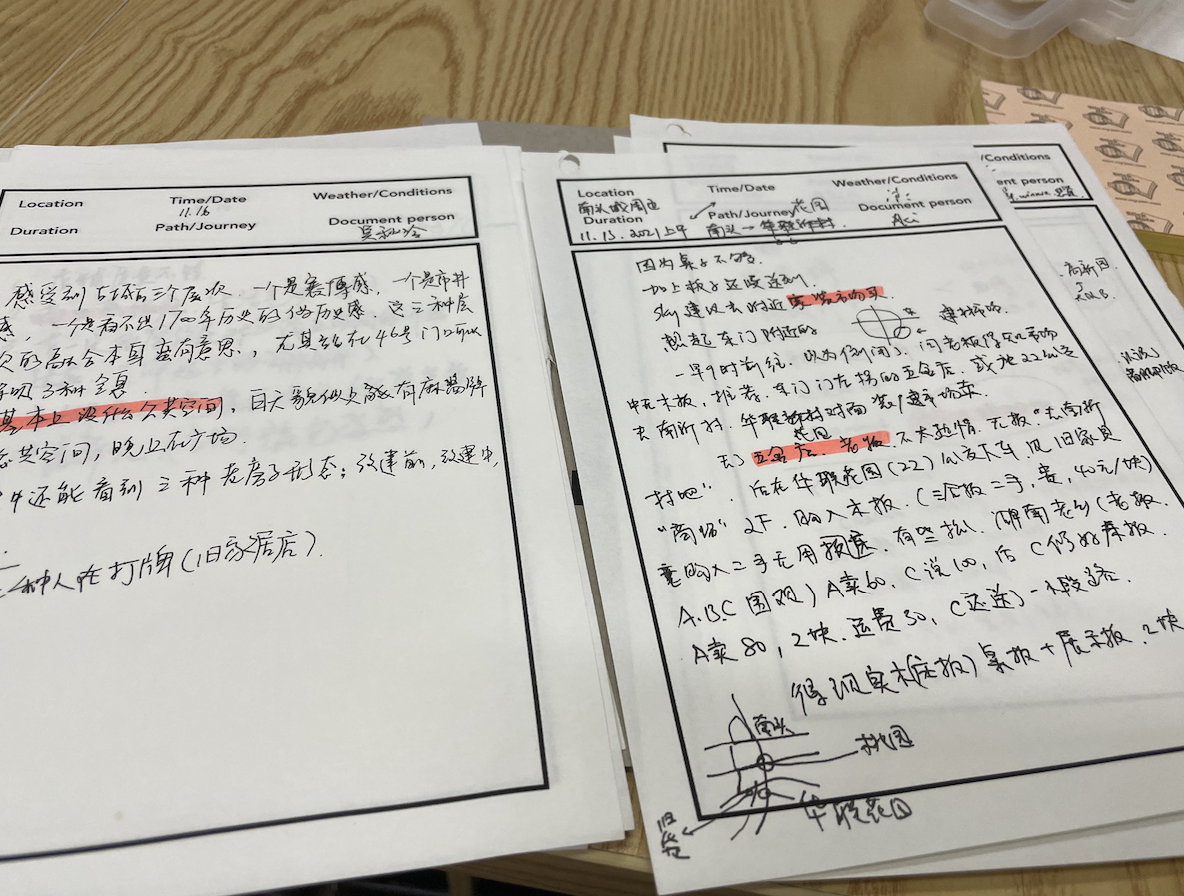 Location
Time/Date
11.16
Weather/Conditions
Duration
Path/Journey
Document person
感受到古城有三个层次，一个是赛博感，一个是市井
感，一个是看不出1700年历史的伪历史感。这三种层
次的融合本身蛮有意思，尤其站在46号门口可以
了种
基本上没什么公共空间，白天貌似只能有麻将牌
公共空间，晚上在广场.
中还能看到三种老房子形态：改建前，改建中，
种人在打牌（旧家居店）.
Location
Time/Date
Weather/Conditions
南头城周边
Duration
Path/Journey
花园
Document person
11.13.2021上午
南头→华联
Aci
因为桌子不够.
加上板子还没送到
Sky建议去附近
买
想起东门附近的
建材市场.
一早9时前往，以为倒闭了，问老板
中无木板，推荐，东门门左拐的五金店，或坐22公交
去南新村，华联新村对面
花园
去了五金店，老板不太热情."无板"."去南新
村吧"，后在华联花园(22)公交下车，见旧家具
"商场"2F，购入木板.（三合板二手，贵，40元/块）
意购入二手无用，有些松，湖南老乡（老板.
A.B.C围观）A卖60，C说100，后C仍
A卖80，2块.运费30，C还送一小段路.
得到实木(床板)桌板+展示板.2块
南头
桃园
华联花园
高新园
/Conditions
ent person